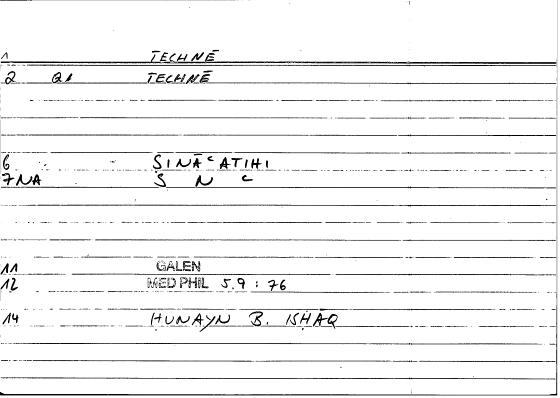 1 TECHNĒ
2 Q1 TECHNĒ
6 ṢINĀʿATIHI
7NA Ṣ N ʿ
11 GALEN
12 MED PHIL 5.9 : 76
14 ḤUNAYN B. ISḤĀQ